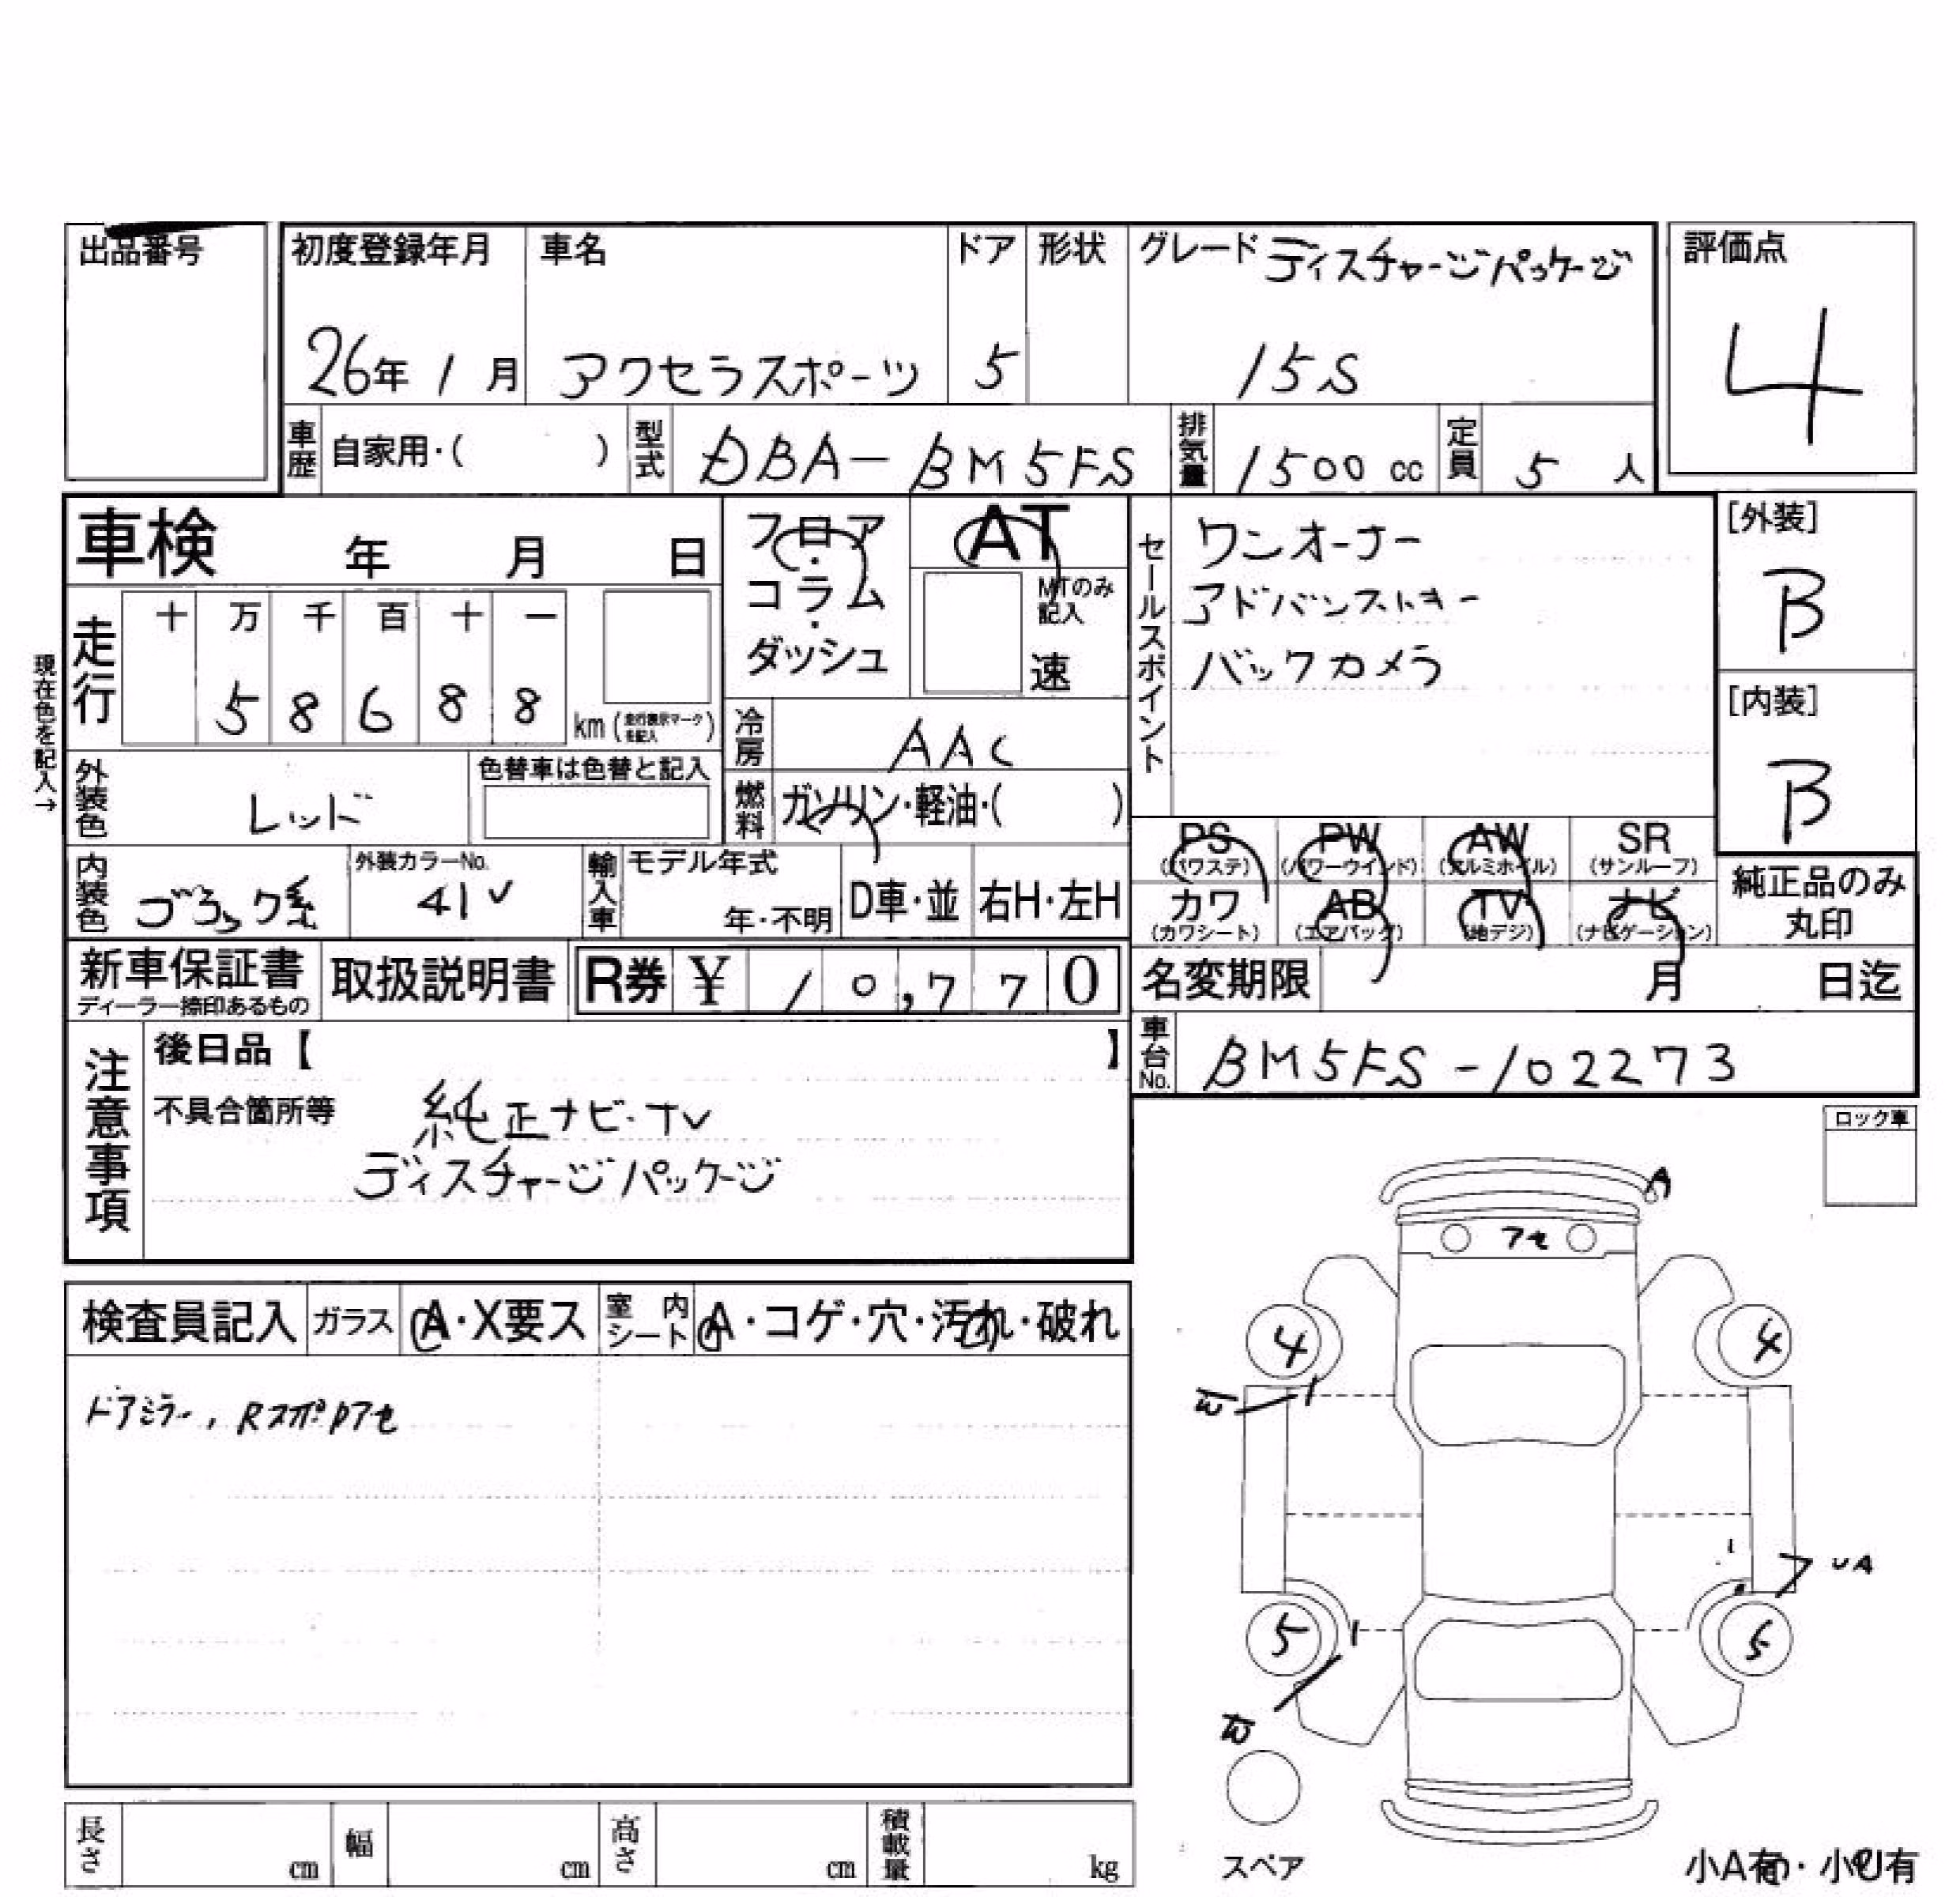 出品番号
初度登録年月 車名 ドア 形状 グレード ディスチャージパッケージ
26年 1月 アクセラスポーツ 5 15S
評価点
4
車歴 自家用・( ) 型式 DBA-BM5FS 排気量 1500 cc 定員 5 人
車検 年 月 日
フロア・コラム・ダッシュ
AT
MTのみ記入
速
セールスポイント
ワンオーナー
アドバンストキー
バックカメラ
[外装]
B
[内装]
B
現在色を記入→
走行 十 万 千 百 十 一
5 8 6 8 8 km (走行表示マークを記入)
冷房 AAC
外装色 レッド 色替車は色替と記入
燃料 ガソリン・軽油・( )
PS (パワステ) PW (パワーウインド) AW (アルミホイル) SR (サンルーフ)
カワ (カワシート) AB (エアバック) TV (地デジ) ナビ (ナビゲーション)
純正品のみ
丸印
内装色 ブラック系 外装カラーNo. 41V 輸入車 モデル年式 年・不明 D車・並 右H・左H
新車保証書 ディーラー捺印あるもの 取扱説明書 R券 ¥ 10,770
名変期限 月 日迄
車台No. BM5FS-102273
注意事項
後日品【 】
不具合箇所等 純正ナビ・TV
ディスチャージパッケージ
ロック車
検査員記入 ガラス A・X要ス 室内シート A・コゲ・穴・汚れ・破れ
ドアミラー, RスポDアセ
A
アセ
4 4
UA
5 5
スペア
小A有・小U有
長さ cm 幅 cm 高さ cm 積載量 kg